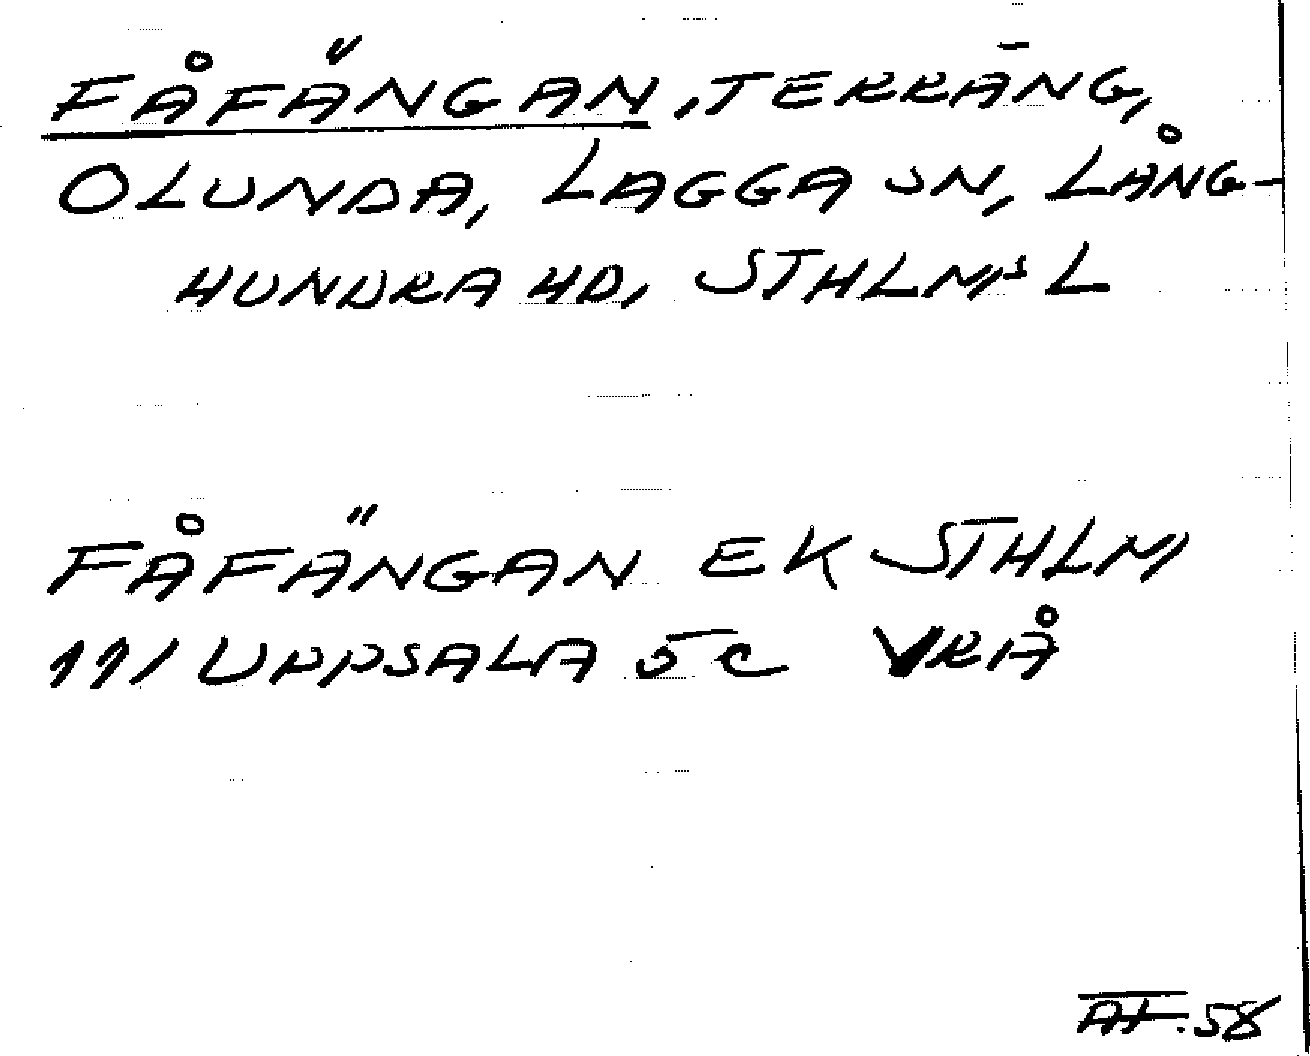 FÅFÄNGAN, TERRÄNG,
OLUNDA, LAGGA SN, LÅNG-
HUNDRA HD, STHLMS L
FÅFÄNGAN EK STHLM
111 UPPSALA 5C VRÅ
58